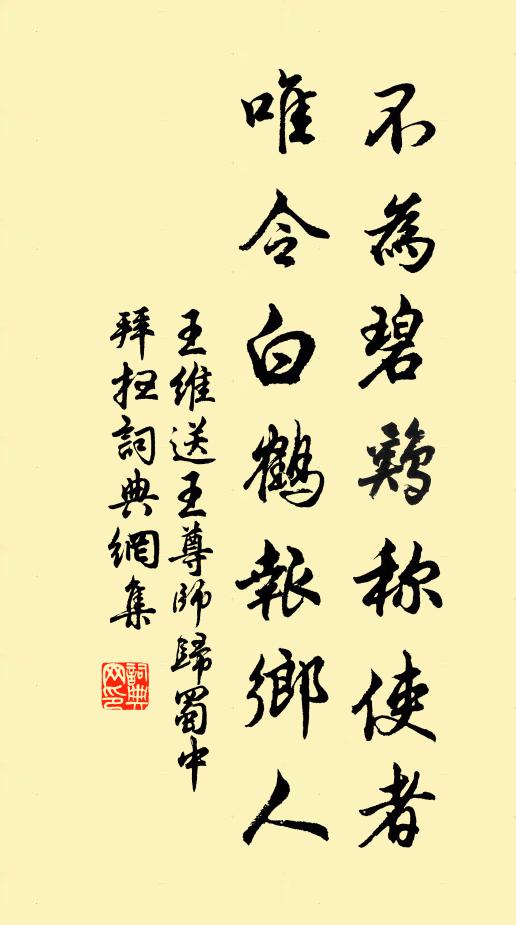 不為碧鷄称使者
唯令白鶴報鄉人
王維送王尊師歸蜀中
拜扫詞典網集
詞典网印